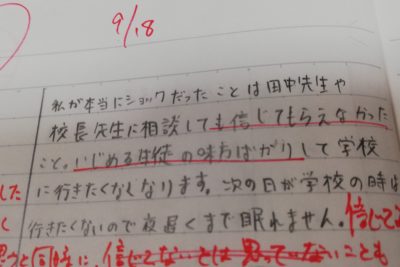 9/18
私が本当にショックだったことは田中先生や
校長先生に相談しても信じてもらえなかった
こと。いじめる生徒の味方ばかりして学校
した に行きたくなくなります。次の日が学校の時は
く 行きたくないので夜遅くまで眠れません。信じてる
思うと同時に、信じてないとは思っていないことも